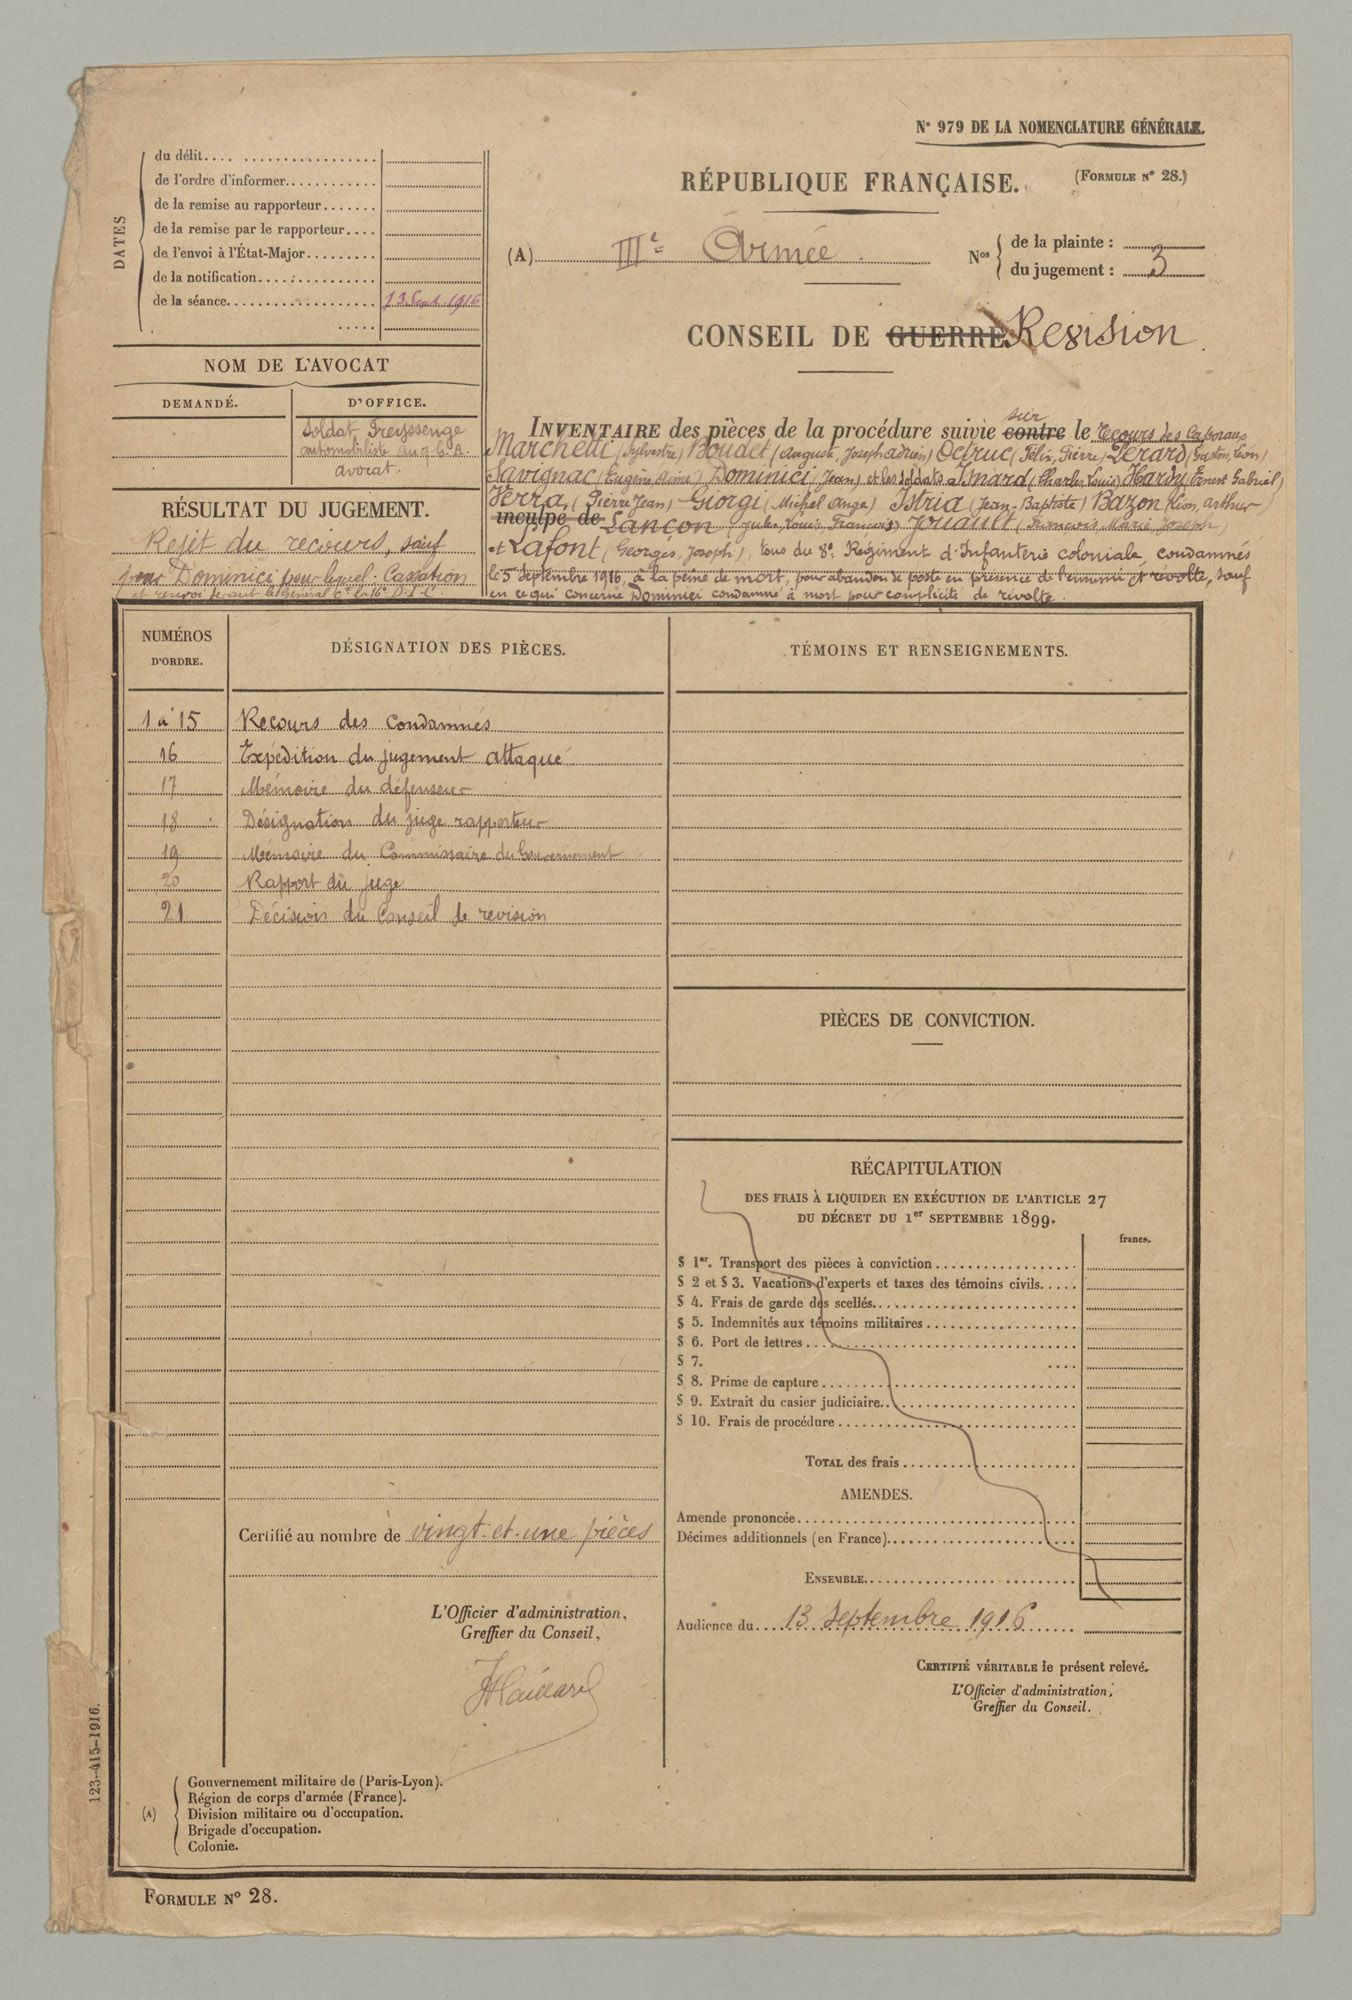 N° 979 DE LA NOMENCLATURE GÉNÉRALE.
(FORMULE N° 28.)
RÉPUBLIQUE FRANÇAISE.
(A) IIIe Armée
Nos de la plainte :
du jugement : 3
CONSEIL DE GUERRE Revision
DATES
du délit
de l'ordre d'informer
de la remise au rapporteur
de la remise par le rapporteur
de l'envoi à l'État-Major
de la notification
de la séance 13 Sept 1916
NOM DE L'AVOCAT
DEMANDÉ.
D'OFFICE.
Soldat
automobiliste au C. A.
avocat.
RÉSULTAT DU JUGEMENT.
Rejet du recours, sauf
pour Dominici pour lequel Cassation
et renvoi devant le Général Ct la 16e D.I.C.
sur
INVENTAIRE des pièces de la procédure suivie contre le recours des Caporaux
Marchetti (Sylvestre) Boudet (Auguste, Joseph Adrien) Octruc (Félix, Pierre) Lerard (Gaston, Léon)
Savignac (Eugène Aimé) Dominici (Jean) et les soldats Isnard (Charles, Louis) Hardy (Ernest Gabriel)
Verra (Pierre Jean) Giorgi (Michel Ange) Istria (Jean-Baptiste) Bazon (Léon, Arthur)
inculpé de Lançon (Jules, Louis François) Jouault (François, Marie Joseph)
et Lafont (Georges, Joseph), tous du 8e Régiment d'Infanterie coloniale condamnés
le 5 Septembre 1916, à la peine de mort, pour abandon de poste en présence de l'ennemi et révolte, sauf
en ce qui concerne Dominici condamné à mort pour complicité de révolte.
NUMÉROS
D'ORDRE.
DÉSIGNATION DES PIÈCES.
TÉMOINS ET RENSEIGNEMENTS.
1 à 15 Recours des condamnés
16 Expédition du jugement attaqué
17 Mémoire du défenseur
18 Désignation du juge rapporteur
19 Mémoire du Commissaire du Gouvernement
20 Rapport du juge
21 Décision du Conseil de revision
PIÈCES DE CONVICTION.
RÉCAPITULATION
DES FRAIS À LIQUIDER EN EXÉCUTION DE L'ARTICLE 27
DU DÉCRET DU 1er SEPTEMBRE 1899.
francs.
§ 1er. Transport des pièces à conviction
§ 2 et § 3. Vacations d'experts et taxes des témoins civils
§ 4. Frais de garde des scellés
§ 5. Indemnités aux témoins militaires
§ 6. Port de lettres
§ 7.
§ 8. Prime de capture
§ 9. Extrait du casier judiciaire
§ 10. Frais de procédure
TOTAL des frais
AMENDES.
Amende prononcée
Décimes additionnels (en France)
ENSEMBLE
Audience du 13 Septembre 1916
CERTIFIÉ VÉRITABLE le présent relevé.
L'Officier d'administration,
Greffier du Conseil.
Certifié au nombre de vingt-et-une pièces
L'Officier d'administration,
Greffier du Conseil,
123-415-1916.
(A)
Gouvernement militaire de (Paris-Lyon).
Région de corps d'armée (France).
Division militaire ou d'occupation.
Brigade d'occupation.
Colonie.
FORMULE N° 28.